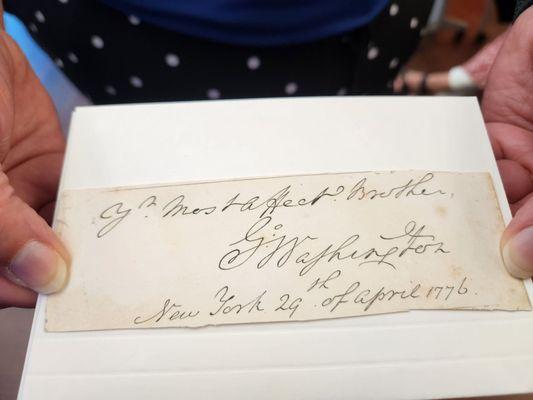 Yr. Most Affect. Brother,
G:Washington
New York 29th of April 1776.